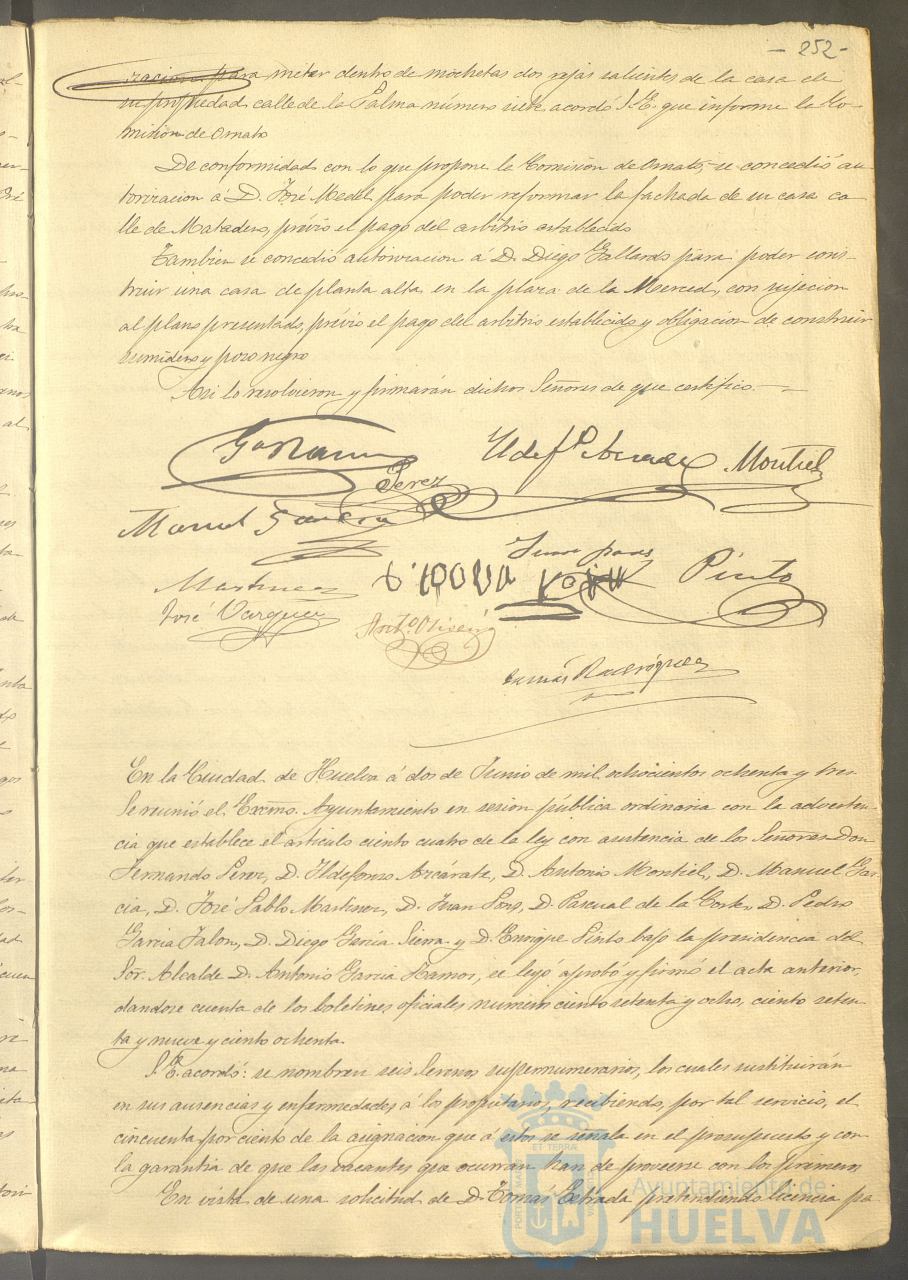 - 252 -
racion para meter dentro de mochetas dos rejas salientes de la casa de
su propiedad calle de la Palma número siete acordó S. E. que informe la Co-
mision de Ornato
De conformidad con lo que propone la Comision de Ornato, se concedió au-
torizacion á D. José Medel para poder reformar la fachada de su casa ca-
lle de Matadero, prévio el pago del arbitrio establecido
Tambien se concedió autorizacion á D. Diego Gallardo para poder cons-
truir una casa de planta alta en la plaza de la Merced, con sujecion
al plano presentado, prévio el pago del arbitrio establecido y obligacion de construir
sumidero y pozo negro
Asi lo resolvieron y firmarán dichos Señores de que certifico.
Ga Ramos
Perez
Montiel
Manuel Garcia
Juan pons
Pinto
Martinez
José Vazquez
Anto. Oliveira
Tomás Rodriguez
En la Ciudad de Huelva á dos de Junio de mil ochocientos ochenta y tres
Se reunió el Excmo. Ayuntamiento en sesion pública ordinaria con la adverten-
cia que establece el articulo ciento cuatro de la ley con asistencia de los Señores Don
Fernando Perez, D. Ildefonso Azcárate, D. Antonio Montiel, D. Manuel Gar-
cia, D. José Pablo Martinez, D. Juan Pons, D. Pascual de la Corte, D. Pedro
Garcia Jalon, D. Diego Garcia Sierra y D. Enrique Pinto bajo la presidencia del
Sor. Alcalde D. Antonio Garcia Ramos, se leyó aprobó y firmó el acta anterior,
dandose cuenta de los boletines oficiales número ciento setenta y ocho, ciento seten-
ta y nueve y ciento ochenta.
S. E. acordó: se nombren seis Serenos supernumerarios, los cuales sustituirán
en sus ausencias y enfermedades á los propietarios, recibiendo, por tal servicio, el
cincuenta por ciento de la asignacion que á estos se señala en el presupuesto y con
la garantia de que las vacantes que ocurran han de proveerse con los primeros
En vista de una solicitud de D. Tomás Estrada pretendiendo licencia pa
Ayuntamiento de
HUELVA